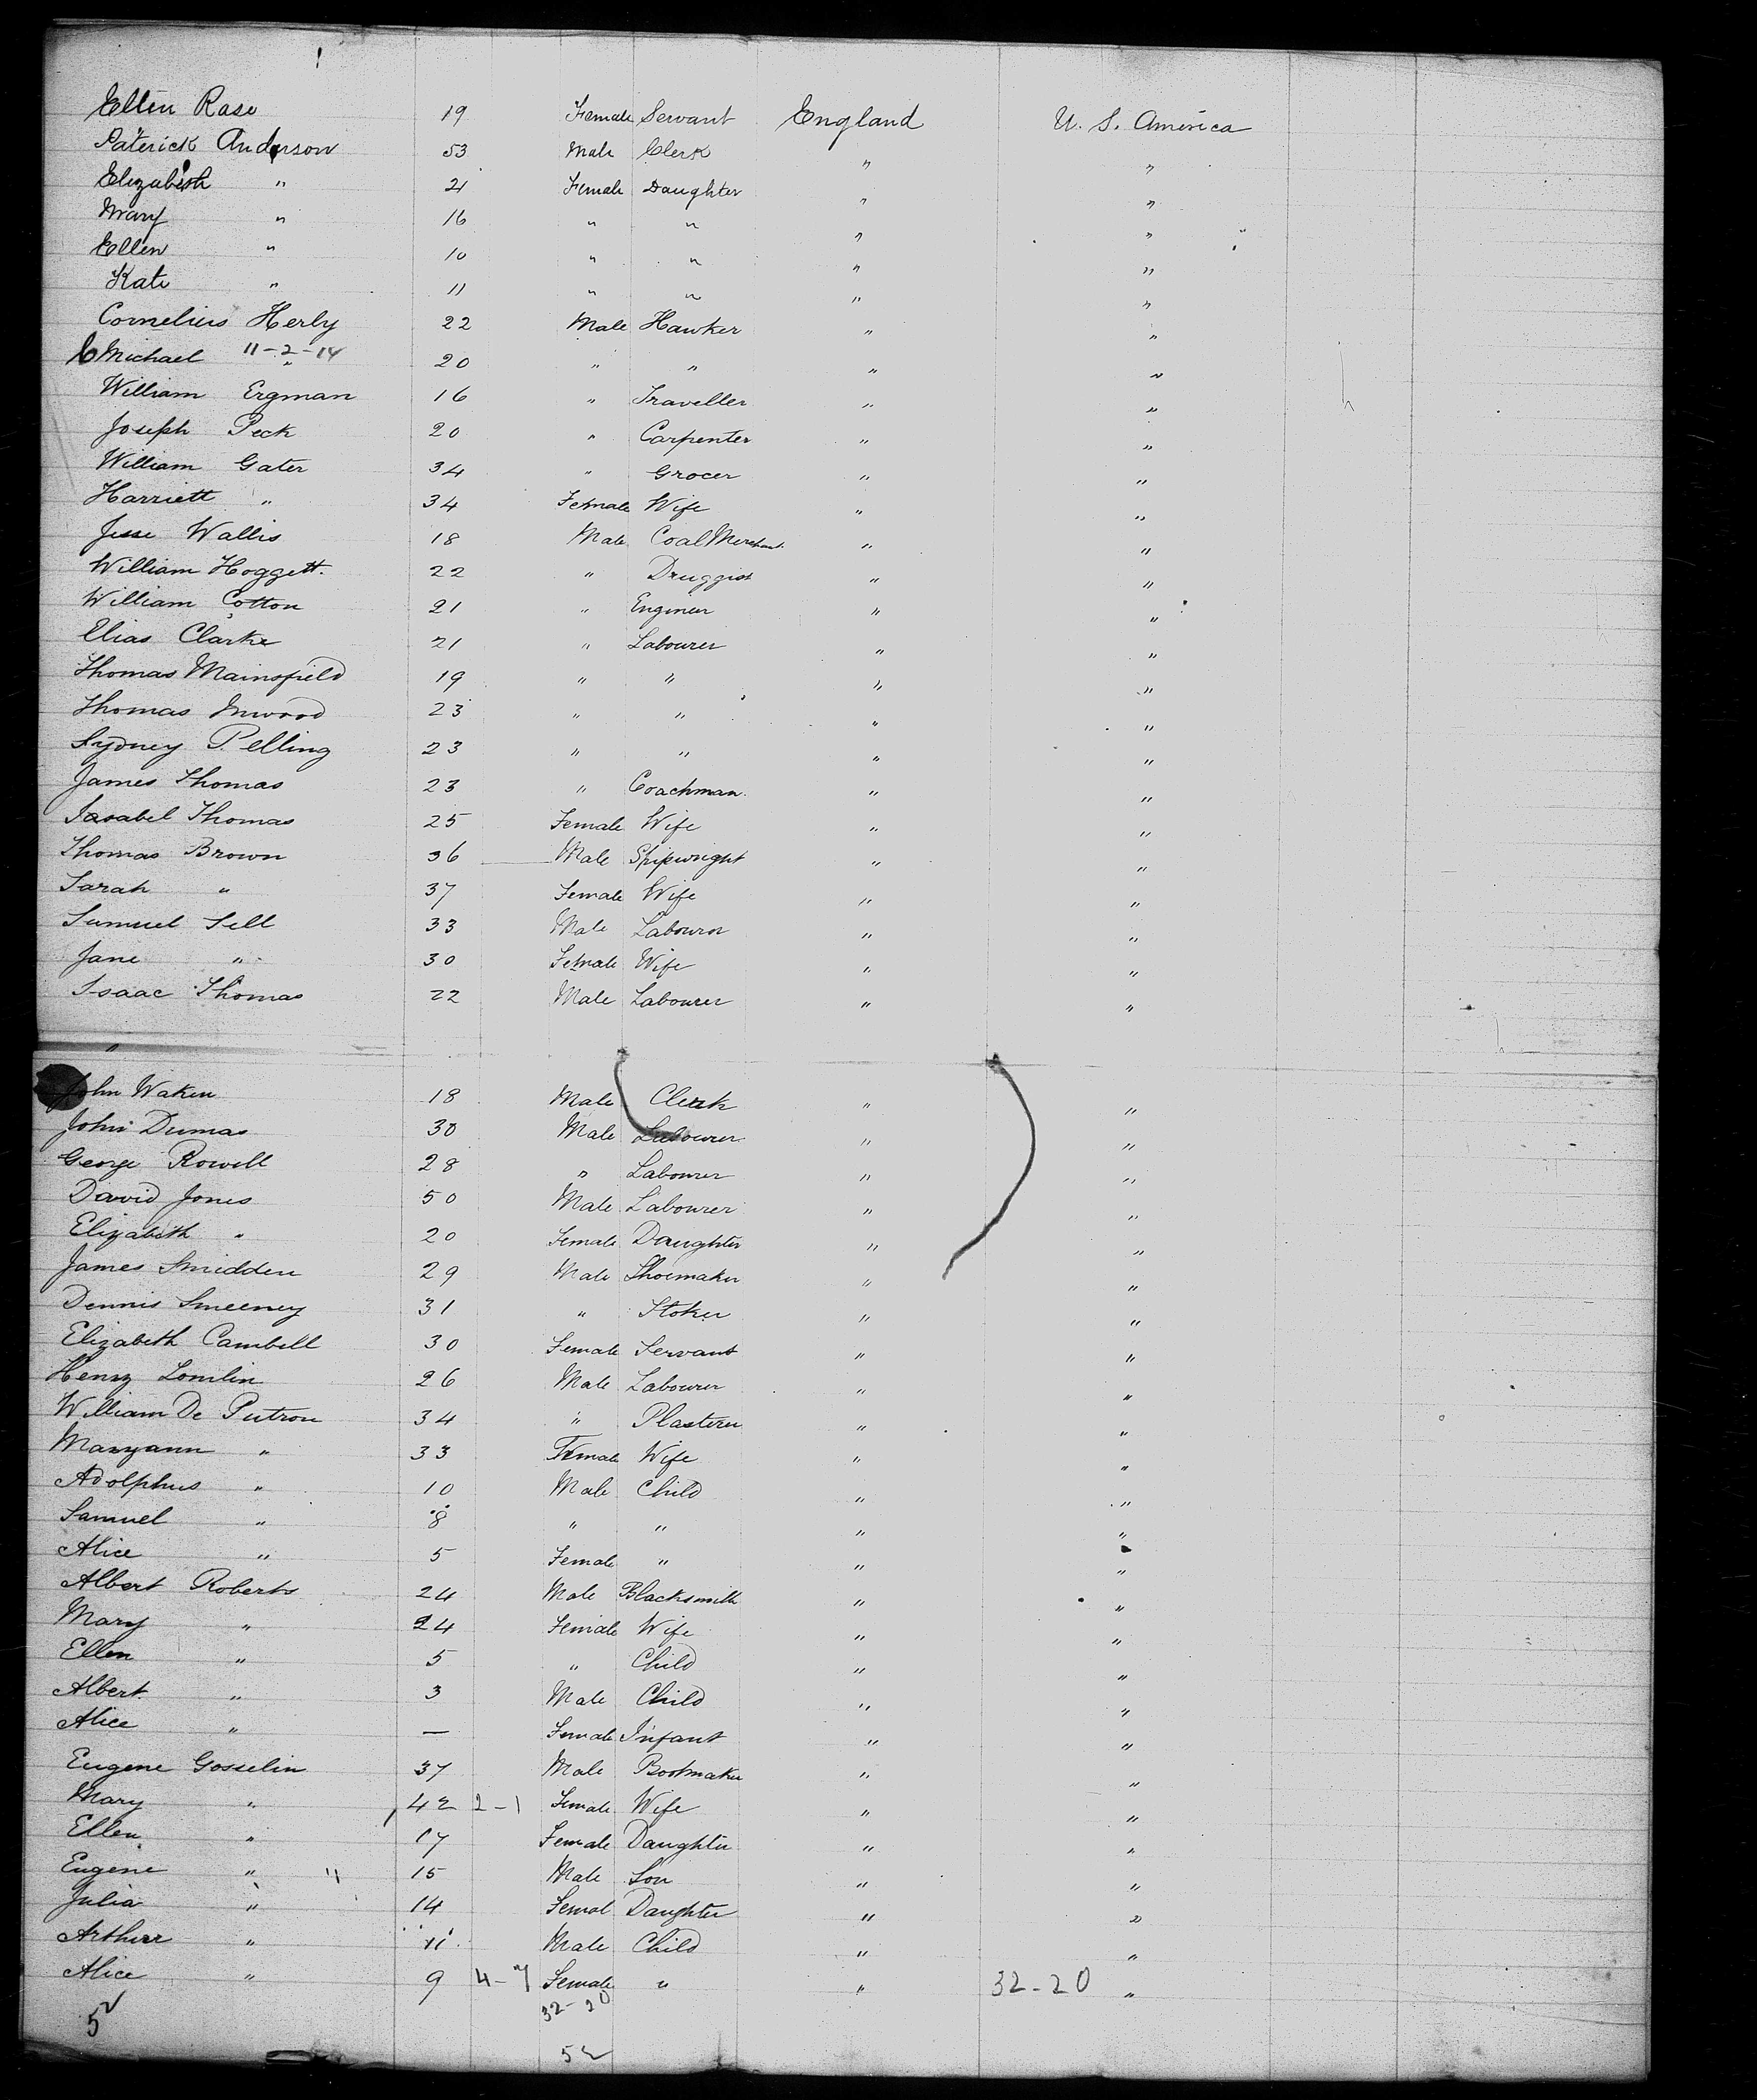 Ellen Rase 19 Female Servant England U. S. America
Paterick Anderson 53 Male Clerk " "
Elizabeth " 21 Female Daughter " "
Mary " 16 " " " "
Ellen " 10 " " " "
Kate " 11 " " " "
Cornelius Herly 22 Male Hawker " "
Michael 11-2-14 " 20 " " " "
William Ergman 16 " Traveller " "
Joseph Peck 20 " Carpenter " "
William Gater 34 " Grocer " "
Harriett " 34 Female Wife " "
Jesse Wallis 18 Male Coal Merchant " "
William Hoggett. 22 " Druggist " "
William Cotton 21 " Engineer " "
Elias Clarke 21 " Labourer " "
Thomas Mainsfield 19 " " " "
Thomas Inwood 23 " " " "
Sydney Pelling 23 " " " "
James Thomas 23 " Coachman. " "
Isabel Thomas 25 Female Wife " "
Thomas Brown 36 Male Shipwright " "
Sarah " 37 Female Wife " "
Samuel Sell 33 Male Labourer " "
Jane " 30 Female Wife " "
Isaac Thomas 22 Male Labourer " "
John Waken 18 Male Clerk " "
John Dumas 30 Male Labourer " "
George Rowell 28 " Labourer " "
David Jones 50 Male Labourer " "
Elizabeth " 20 Female Daughter " "
James Smidden 29 Male Shoemaker " "
Dennis Smeeney 31 " Stoker " "
Elizabeth Cambell 30 Female Servant " "
Henry Tomlin 26 Male Labourer " "
William De Putron 34 " Plasterer " "
Maryann " 33 Female Wife " "
Adolphus " 10 Male Child " "
Samuel " 8 " " " "
Alice " 5 Female " " "
Albert Roberts 24 Male Blacksmith " "
Mary " 24 Female Wife " "
Ellen " 5 " Child " "
Albert " 3 Male Child " "
Alice " — Female Infant " "
Eugene Gosselin 37 Male Bootmaker " "
Mary " 42 2-1 Female Wife " "
Ellen " 17 Female Daughter " "
Eugene " " 15 Male Son " "
Julia " 14 Femal Daughter " "
Arthur " 11 Male Child " "
Alice " 9 4-7 Female " " 32-20 "
52 32-20
52